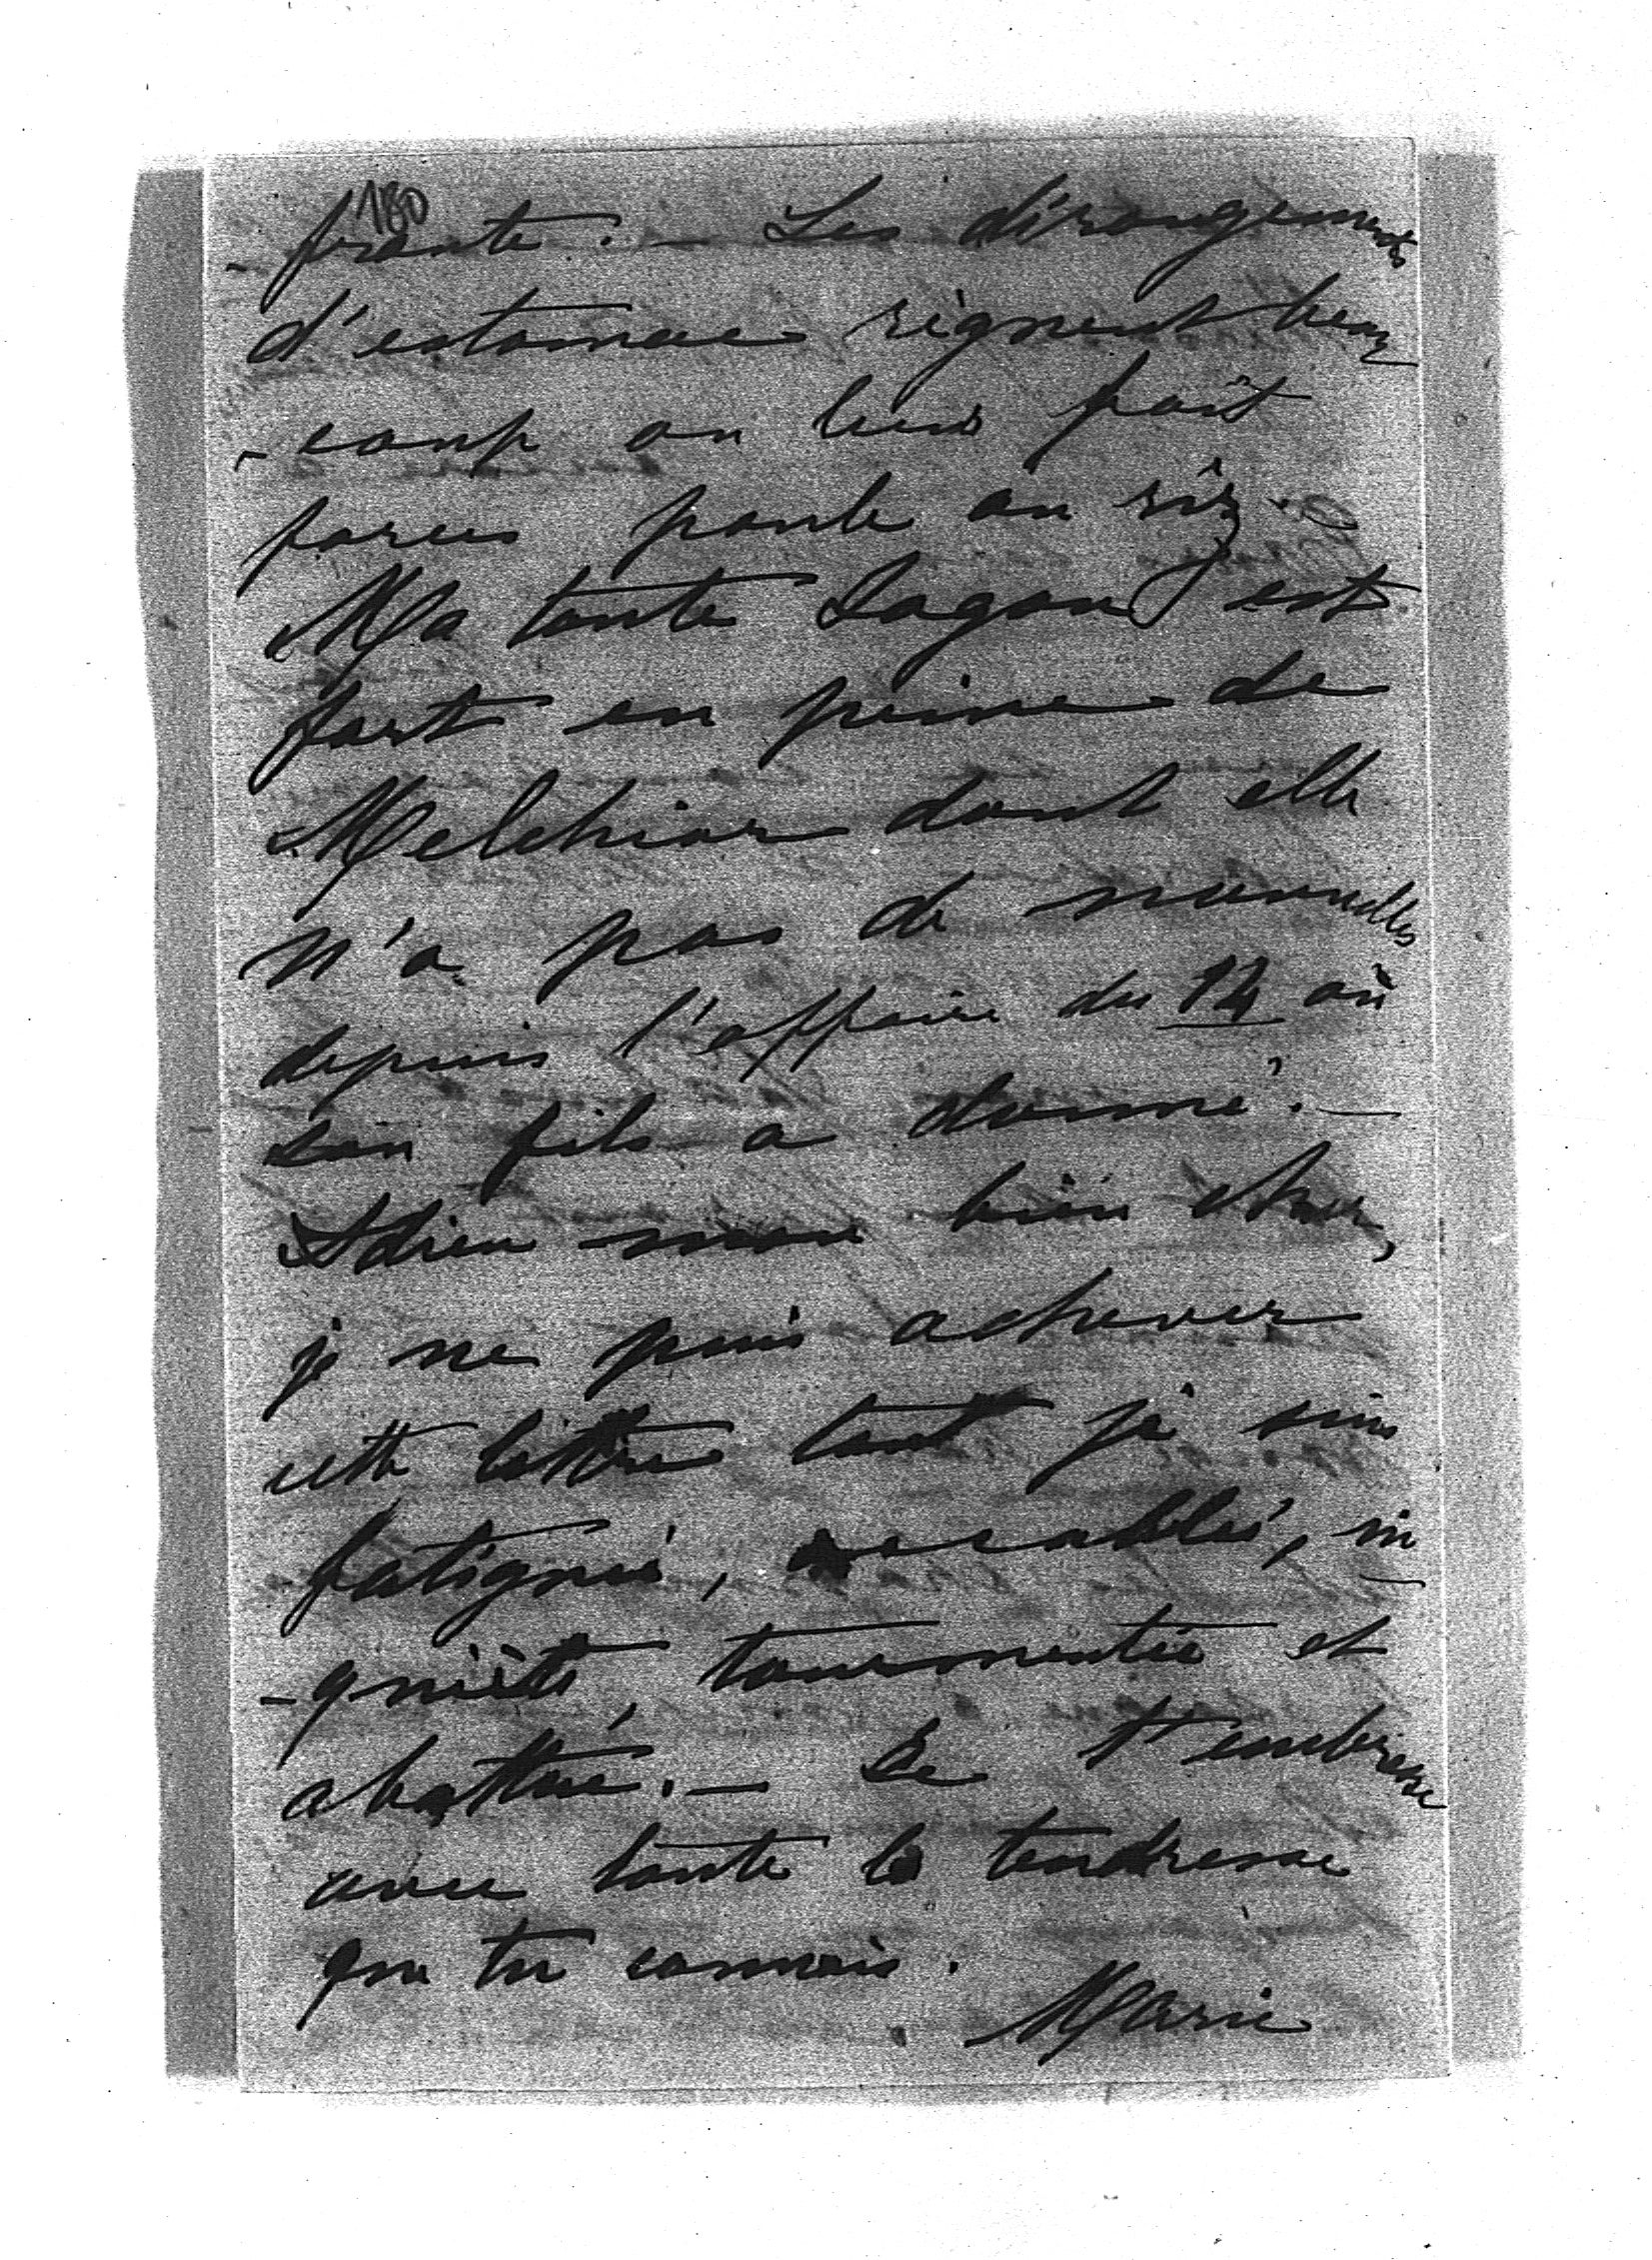 180
-frante. — Les dérangements
d'estomac règnent beau
-coup on leur fait
forces poule au riz.
Ma tante Lagand est
fort en peine de
Melchior dont elle
n'a pas de nouvelles
depuis l'affaire du 14 où
son fils a donné. —
Adieu mon bien cher,
je ne puis achever
cette lettre tant je suis
fatiguée, accablée, in
-quiète, tourmentée et
abattue. — Je t'embrasse
avec toute la tendresse
que tu connais.
Marie